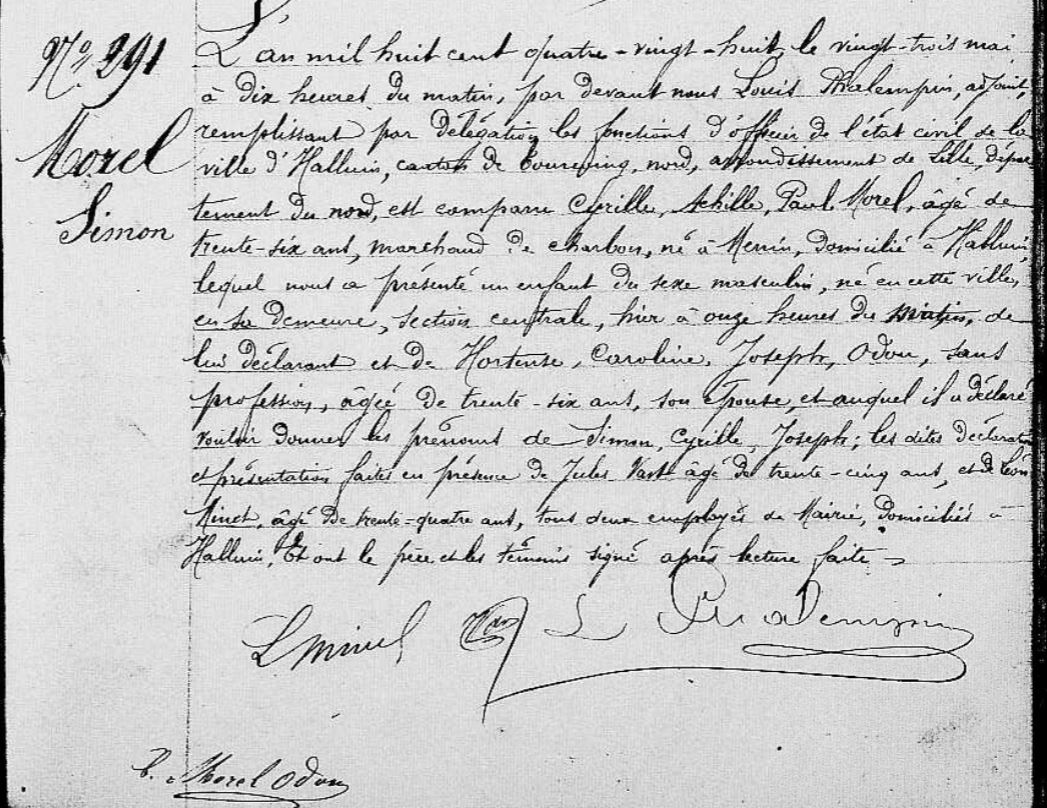 N° 291
Morel
Simon
L'an mil huit cent quatre-vingt-huit, le vingt-trois mai
à dix heures du matin, par devant nous Louis Phalempin, adjoint,
remplissant par délégation les fonctions d'officier de l'état civil de la
ville d'Halluin, canton de tourcoing, nord, arrondissement de Lille, dépar
tement du nord, est comparu Cyrille, Achille, Paul Morel, âgé de
trente-six ans, marchand de charbon, né à Menin, domicilié à Halluin,
lequel nous a présenté un enfant du sexe masculin, né en cette ville,
en sa demeure, section centrale, hier à onze heures du matin, de
lui déclarant et de Hortense, Caroline, Joseph, Odou, sans
profession, âgée de trente-six ans, son épouse, et auquel il a déclaré
vouloir donner les prénoms de Simon, Cyrille, Joseph; les dites déclaration
et présentation faites en présence de Jules Vast âgé de trente-cinq ans, et de Léon
Minet, âgé de trente-quatre ans, tous deux employés de Mairie, domiciliés à
Halluin, Et ont le père et les témoins signé après lecture faite
L Minet L Phalempin
C. Morel Odou